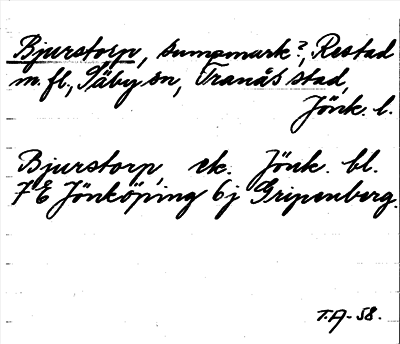 Bjurstorp, sumpmark?, Restad
m.fl., Säby sn, Tranås stad,
Jönk. l.
Bjurstorp, ek. Jönk. bl.
7 E Jönköping 6j Gripenberg.
T.A-58.